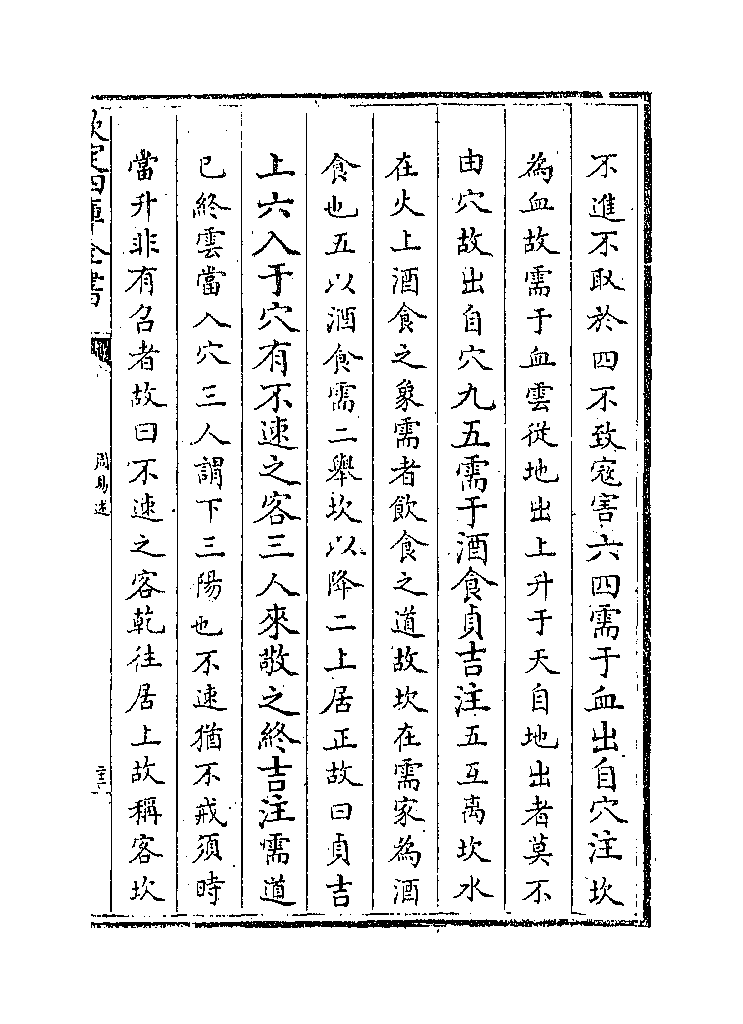 不進不取於四不致寇害六四需于血出自穴注坎
為血故需于血雲從地出上升于天自地出者莫不
由穴故出自穴九五需于酒食貞吉注五互离坎水
在火上酒食之象需者飲食之道故坎在需家為酒
食也五以酒食需二舉坎以降二上居正故曰貞吉
上六入于穴有不速之客三人來敬之終吉注需道
已終雲當入穴三人謂下三陽也不速猶不戒須時
當升非有召者故曰不速之客乾往居上故稱客坎
欽定四庫全書
周易述